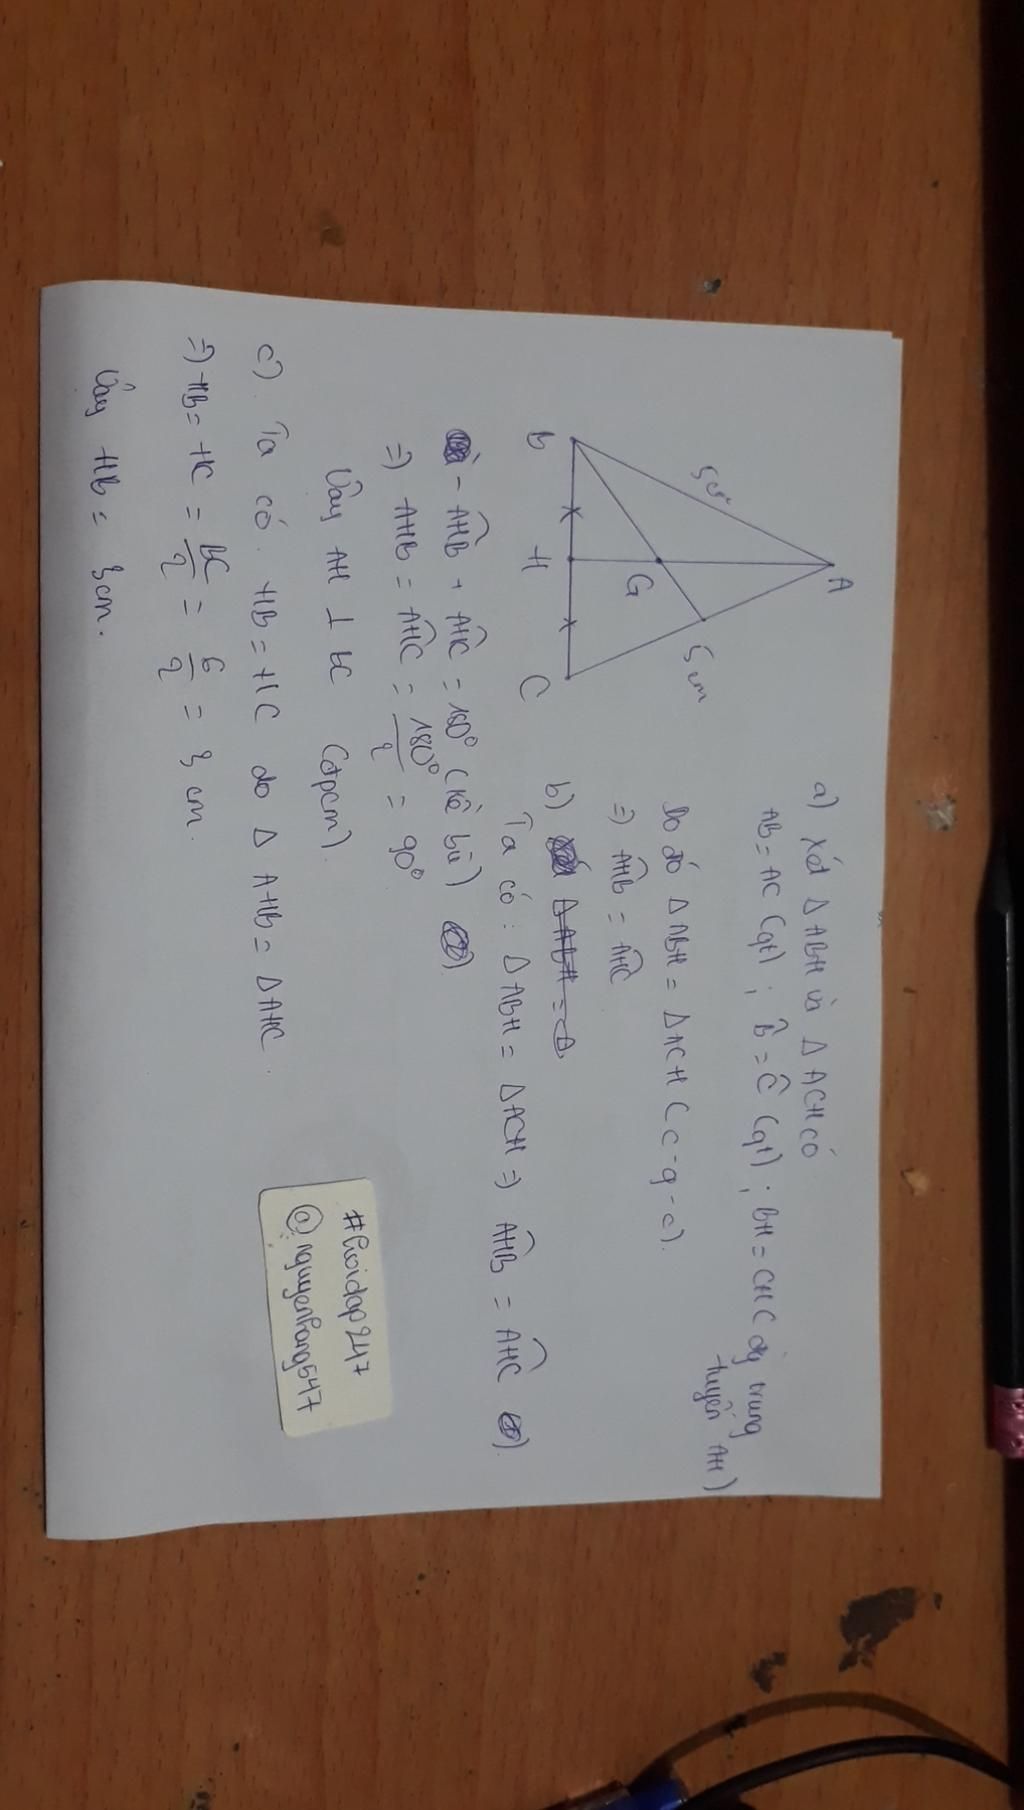 A
5cm
5cm
G
B
H
C
a) Xét Δ ABH và Δ ACH có
AB = AC (gt) ; B̂ = Ĉ (gt) ; BH = CH ( đg trung
tuyến AH)
Do đó Δ ABH = Δ ACH ( c - g - c).
=) AHB = AHC
b) Δ ABH = Δ
Ta có : Δ ABH = Δ ACH =) AHB = AHC
- AHB + AHC = 180° ( kề bù)
=) AHB = AHC = 180°/2 = 90°
Vậy AH ⊥ BC (đpcm).
c) Ta có HB = HC do Δ AHB = Δ AHC.
=) HB = HC = BC/2 = 6/2 = 3 cm.
Vậy HB = 3cm.
#hoidap247
@nguyenhang547